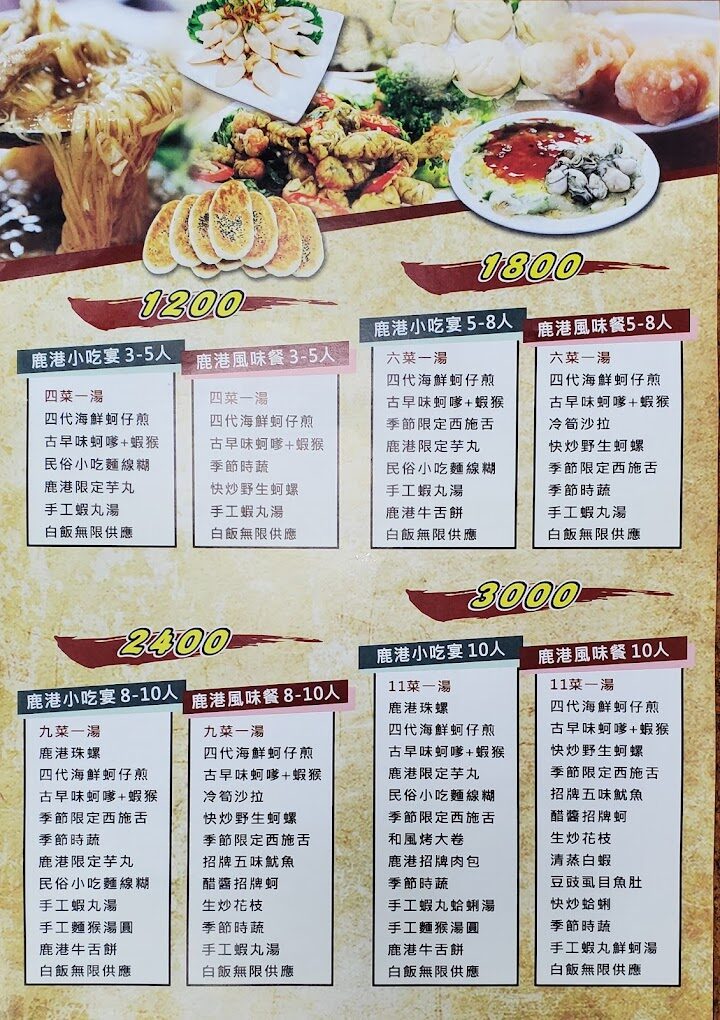 1200
鹿港小吃宴 3-5人
四菜一湯
四代海鮮蚵仔煎
古早味蚵嗲+蝦猴
民俗小吃麵線糊
鹿港限定芋丸
手工蝦丸湯
白飯無限供應
鹿港風味餐 3-5人
四菜一湯
四代海鮮蚵仔煎
古早味蚵嗲+蝦猴
季節時蔬
快炒野生蚵螺
手工蝦丸湯
白飯無限供應
1800
鹿港小吃宴 5-8人
六菜一湯
四代海鮮蚵仔煎
古早味蚵嗲+蝦猴
季節限定西施舌
鹿港限定芋丸
民俗小吃麵線糊
手工蝦丸湯
鹿港牛舌餅
白飯無限供應
鹿港風味餐5-8人
六菜一湯
四代海鮮蚵仔煎
古早味蚵嗲+蝦猴
冷筍沙拉
快炒野生蚵螺
季節限定西施舌
季節時蔬
手工蝦丸湯
白飯無限供應
2400
鹿港小吃宴 8-10人
九菜一湯
鹿港珠螺
四代海鮮蚵仔煎
古早味蚵嗲+蝦猴
季節限定西施舌
季節時蔬
鹿港限定芋丸
民俗小吃麵線糊
手工蝦丸湯
手工麵猴湯圓
鹿港牛舌餅
白飯無限供應
鹿港風味餐 8-10人
九菜一湯
四代海鮮蚵仔煎
古早味蚵嗲+蝦猴
冷筍沙拉
快炒野生蚵螺
季節限定西施舌
招牌五味魷魚
醋醬招牌蚵
生炒花枝
季節時蔬
手工蝦丸湯
白飯無限供應
3000
鹿港小吃宴 10人
11菜一湯
鹿港珠螺
四代海鮮蚵仔煎
古早味蚵嗲+蝦猴
鹿港限定芋丸
民俗小吃麵線糊
季節限定西施舌
和風烤大卷
鹿港招牌肉包
季節時蔬
手工蝦丸蛤蜊湯
手工麵猴湯圓
鹿港牛舌餅
白飯無限供應
鹿港風味餐 10人
11菜一湯
四代海鮮蚵仔煎
古早味蚵嗲+蝦猴
快炒野生蚵螺
季節限定西施舌
招牌五味魷魚
醋醬招牌蚵
生炒花枝
清蒸白蝦
豆豉虱目魚肚
快炒蛤蜊
季節時蔬
手工蝦丸鮮蚵湯
白飯無限供應